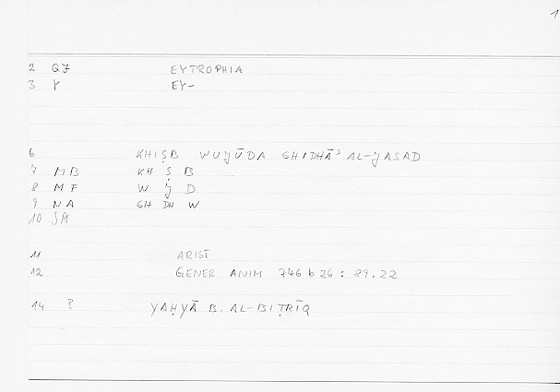 1
2 QJ EYTROPHIA
3 Y EY-
6 KHIṢB WUJŪDA GHIDHĀʾ AL-JASAD
7 MB KH Ṣ B
8 MF W J D
9 NA GH DH W
10 SA
11 ARIST
12 GENER ANIM 746 b 26 : 89.22
14 ? YAḤYĀ B. AL-BIṬRĪQ